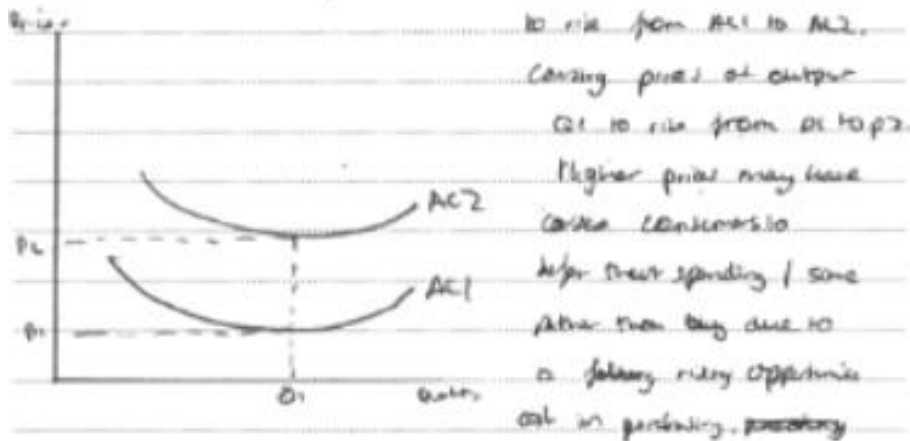 Price
to rise from AC1 to AC2.
Causing prices at output
Q1 to rise from P1 to P2.
Higher prices may have
AC2
consumers to
P2
defer their spending / save
AC1
rather than buy due to
P1
a rising opportunity
Q1
cost in purchasing.